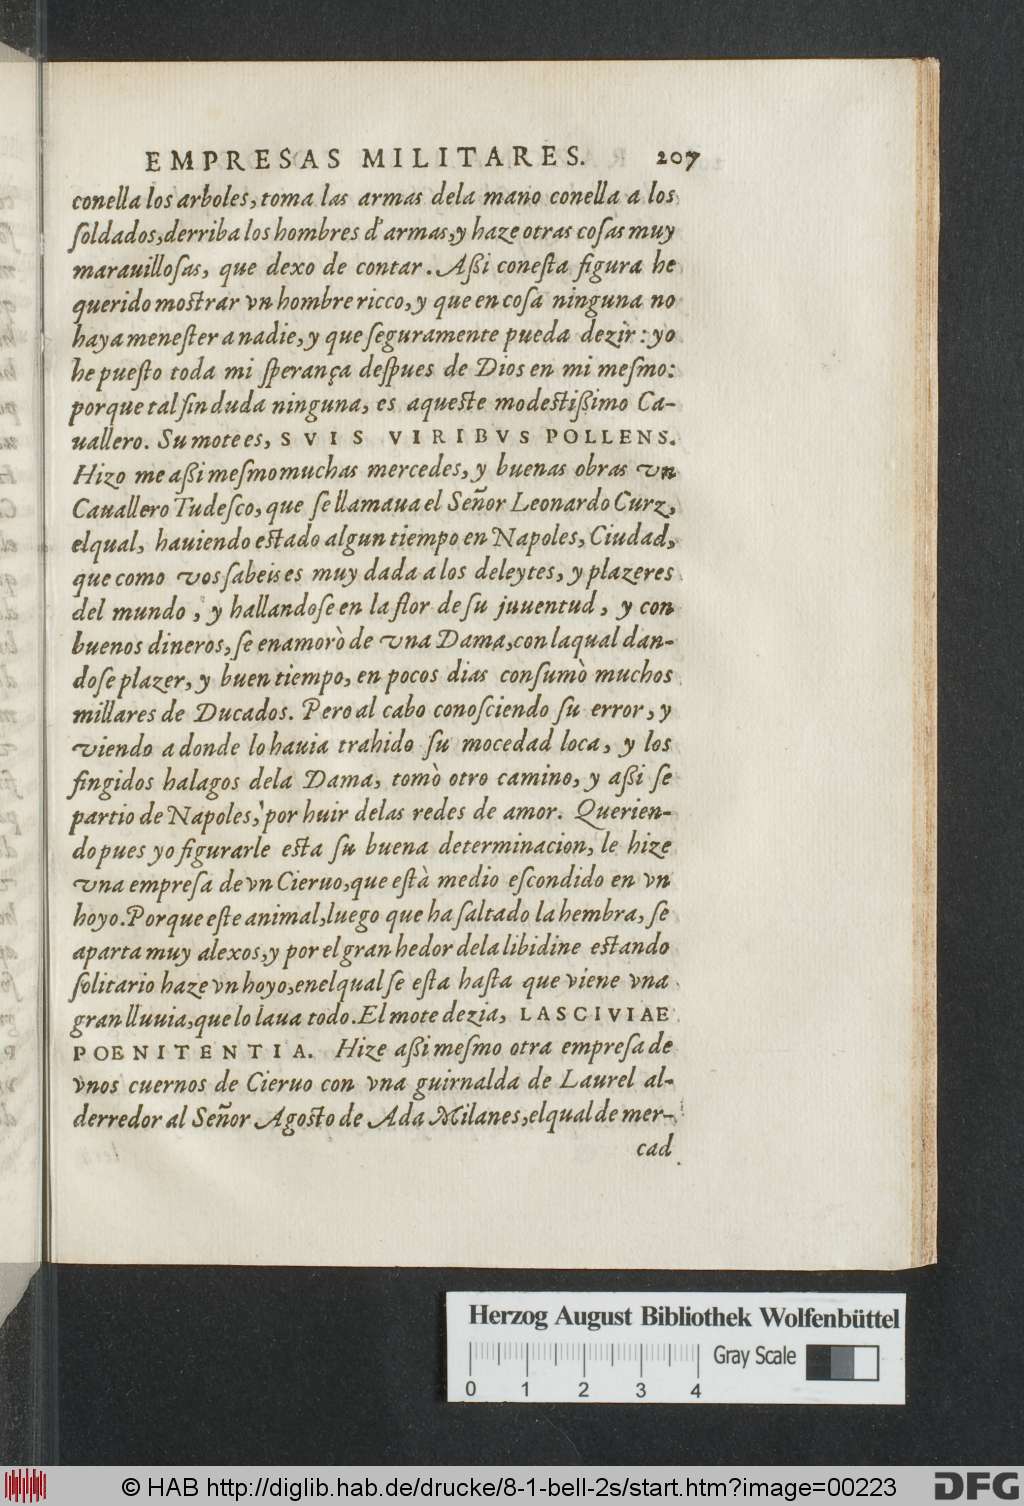 EMPRESAS MILITARES. 207
conella los arboles, toma las armas dela mano conella a los
ſoldados, derriba los hombres d'armas, y haze otras coſas muy
marauilloſas, que dexo de contar. Aßi coneſta figura he
querido mostrar vn hombre ricco, y que en coſa ninguna no
haya meneſter a nadie, y que ſeguramente pueda dezir: yo
he pueſto toda mi ſperança deſpues de Dios en mi meſmo:
porque tal ſin duda ninguna, es aqueſte modestißimo Ca-
uallero. Su mote es, SVIS VIRIBVS POLLENS.
Hizo me aßi meſmo muchas mercedes, y buenas obras vn
Cauallero Tudeſco, que ſe llamaua el Señor Leonardo Curz,
elqual, hauiendo estado algun tiempo en Napoles, Ciudad,
que como vos ſabeis es muy dada a los deleytes, y plazeres
del mundo, y hallandoſe en la flor de ſu juuentud, y con
buenos dineros, ſe enamorò de vna Dama, con laqual dan-
doſe plazer, y buen tiempo, en pocos dias conſumò muchos
millares de Ducados. Pero al cabo conoſciendo ſu error, y
viendo a donde lo hauia trahido ſu mocedad loca, y los
fingidos halagos dela Dama, tomò otro camino, y aßi ſe
partio de Napoles, por huir delas redes de amor. Querien-
do pues yo figurarle esta ſu buena determinacion, le hize
vna empreſa de vn Cieruo, que està medio eſcondido en vn
hoyo. Porque eſte animal, luego que ha ſaltado la hembra, ſe
aparta muy alexos, y por el gran hedor dela libidine estando
ſolitario haze vn hoyo, enelqual ſe eſta haſta que viene vna
gran lluuia, que lo laua todo. El mote dezia, LASCIVIAE
POENITENTIA. Hize aßi meſmo otra empreſa de
vnos cuernos de Cieruo con vna guirnalda de Laurel al-
derredor al Señor Agosto de Ada Milanes, elqual de mer-
cad
Herzog August Bibliothek Wolfenbüttel
Gray Scale
0 1 2 3 4
© HAB http://diglib.hab.de/drucke/8-1-bell-2s/start.htm?image=00223 DFG